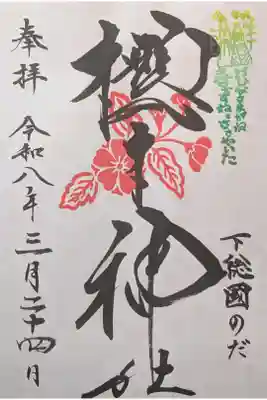 下総國のだ
櫻木神社
奉拝 令和八年三月二十四日